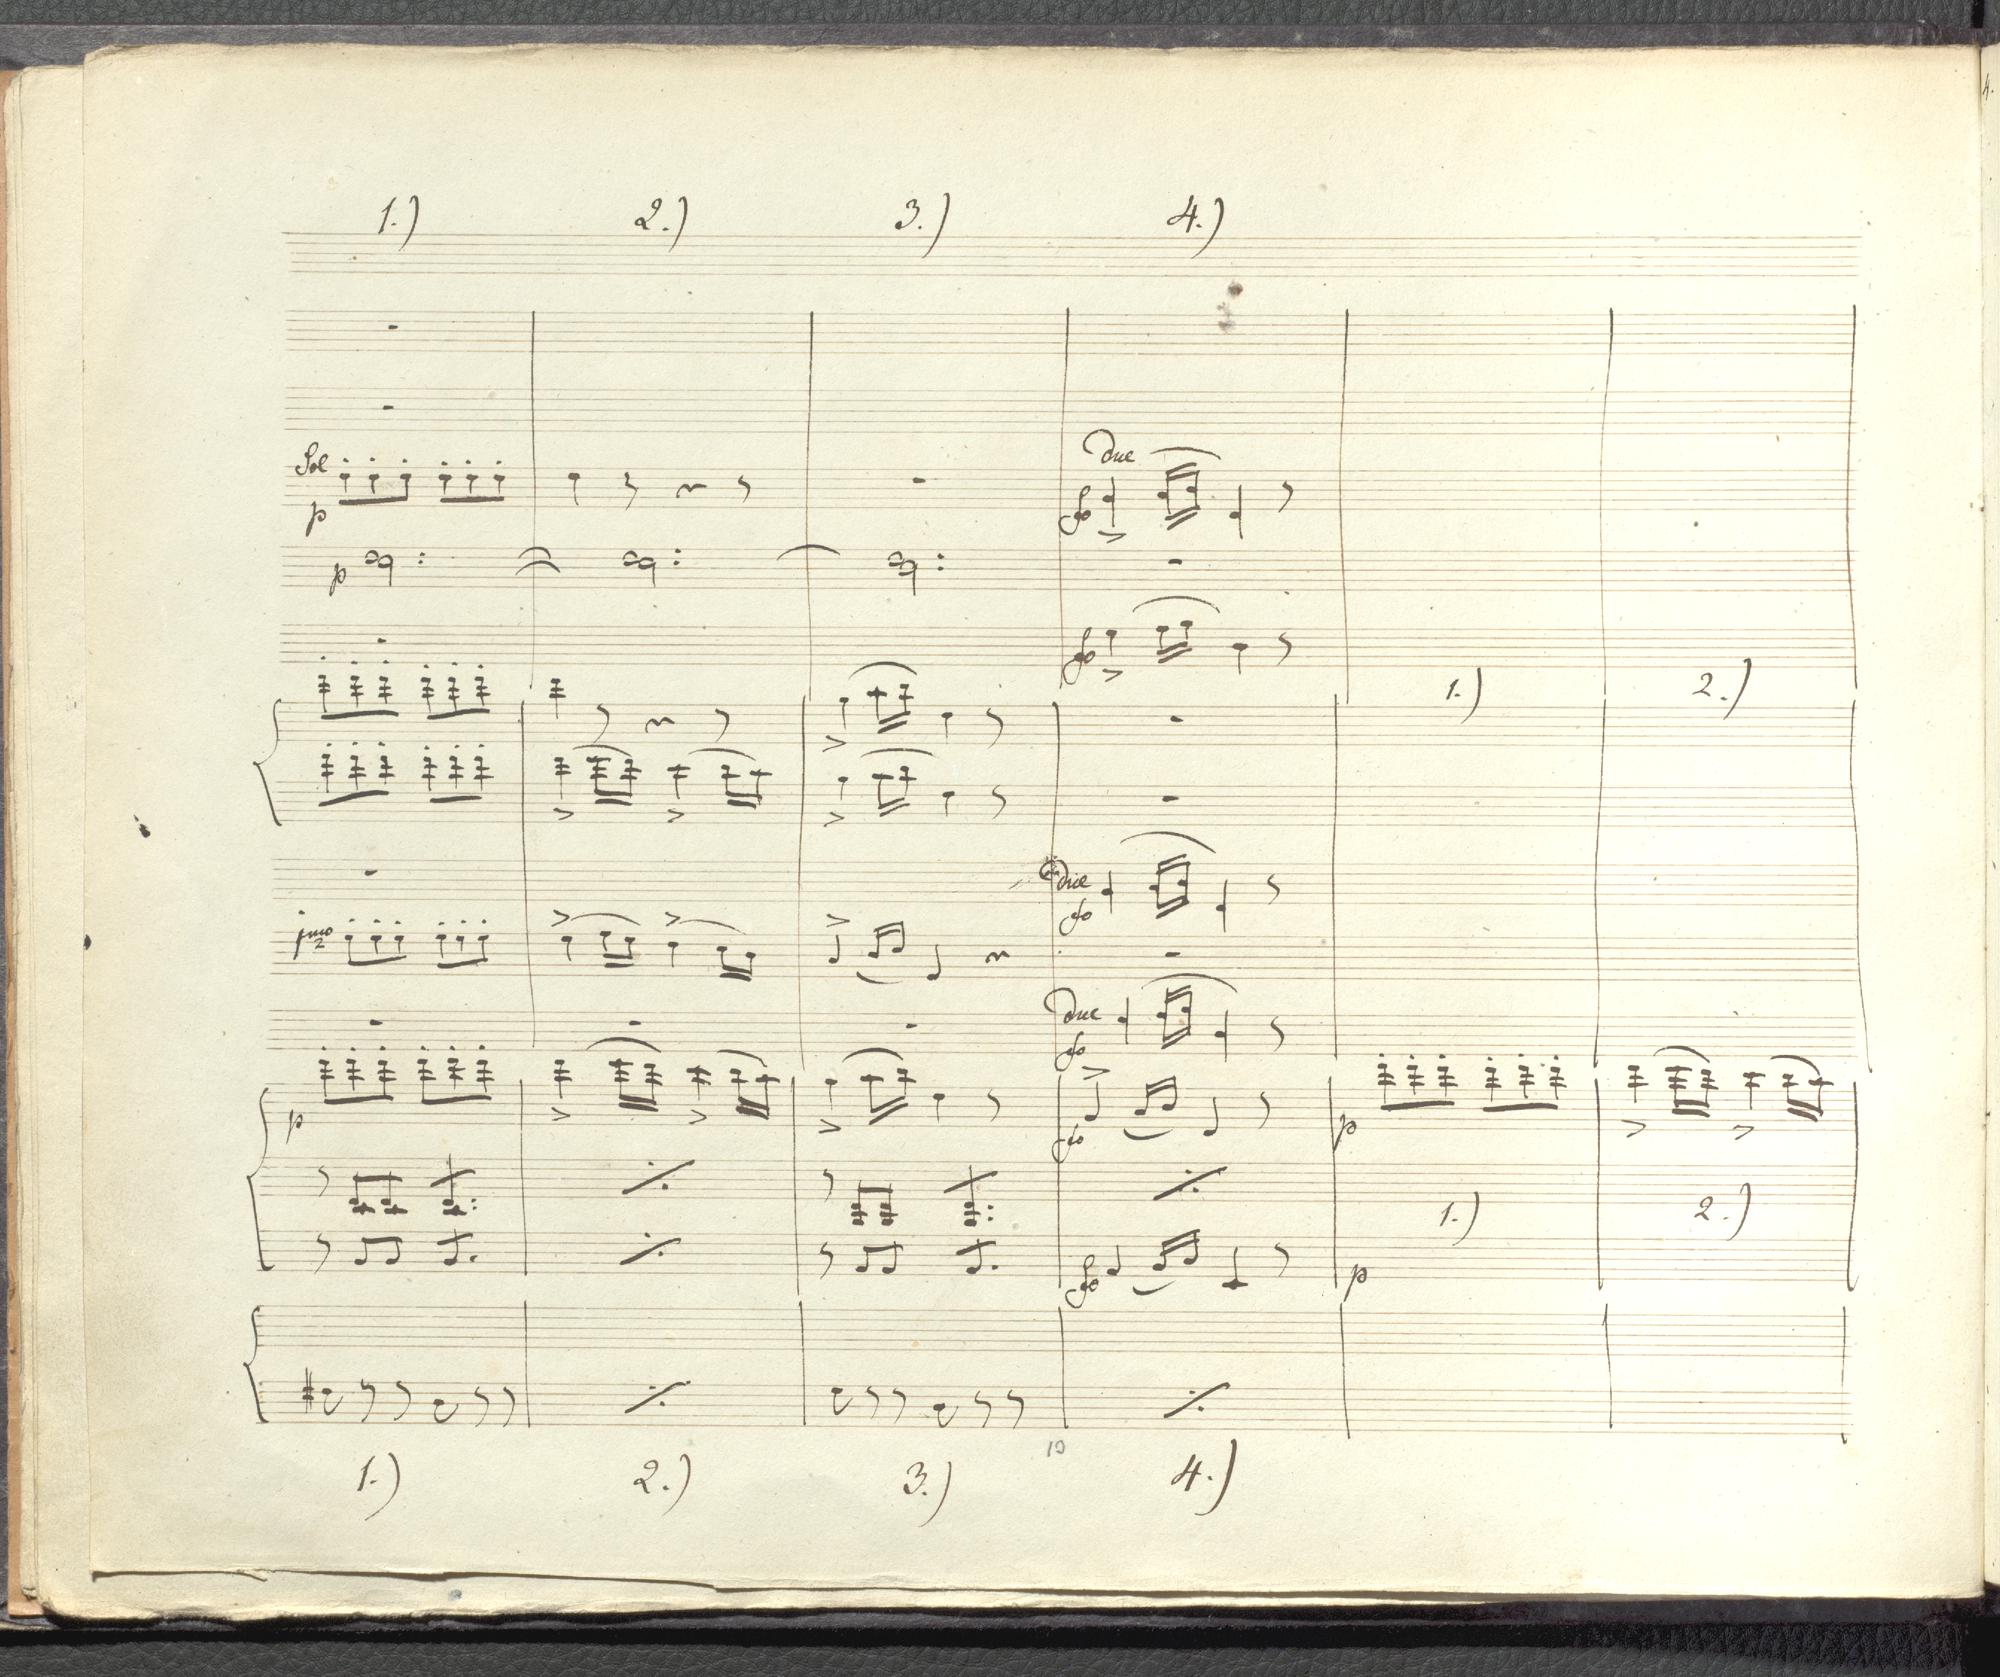 4.
1.) 2.) 3.) 4.)
Sol
p
due
fo
p
fo
1.) 2.)
due
fo
jmo
2
due
fo
p
fo
p
1.) 2.)
fo
p
10
1.) 2.) 3.) 4.)